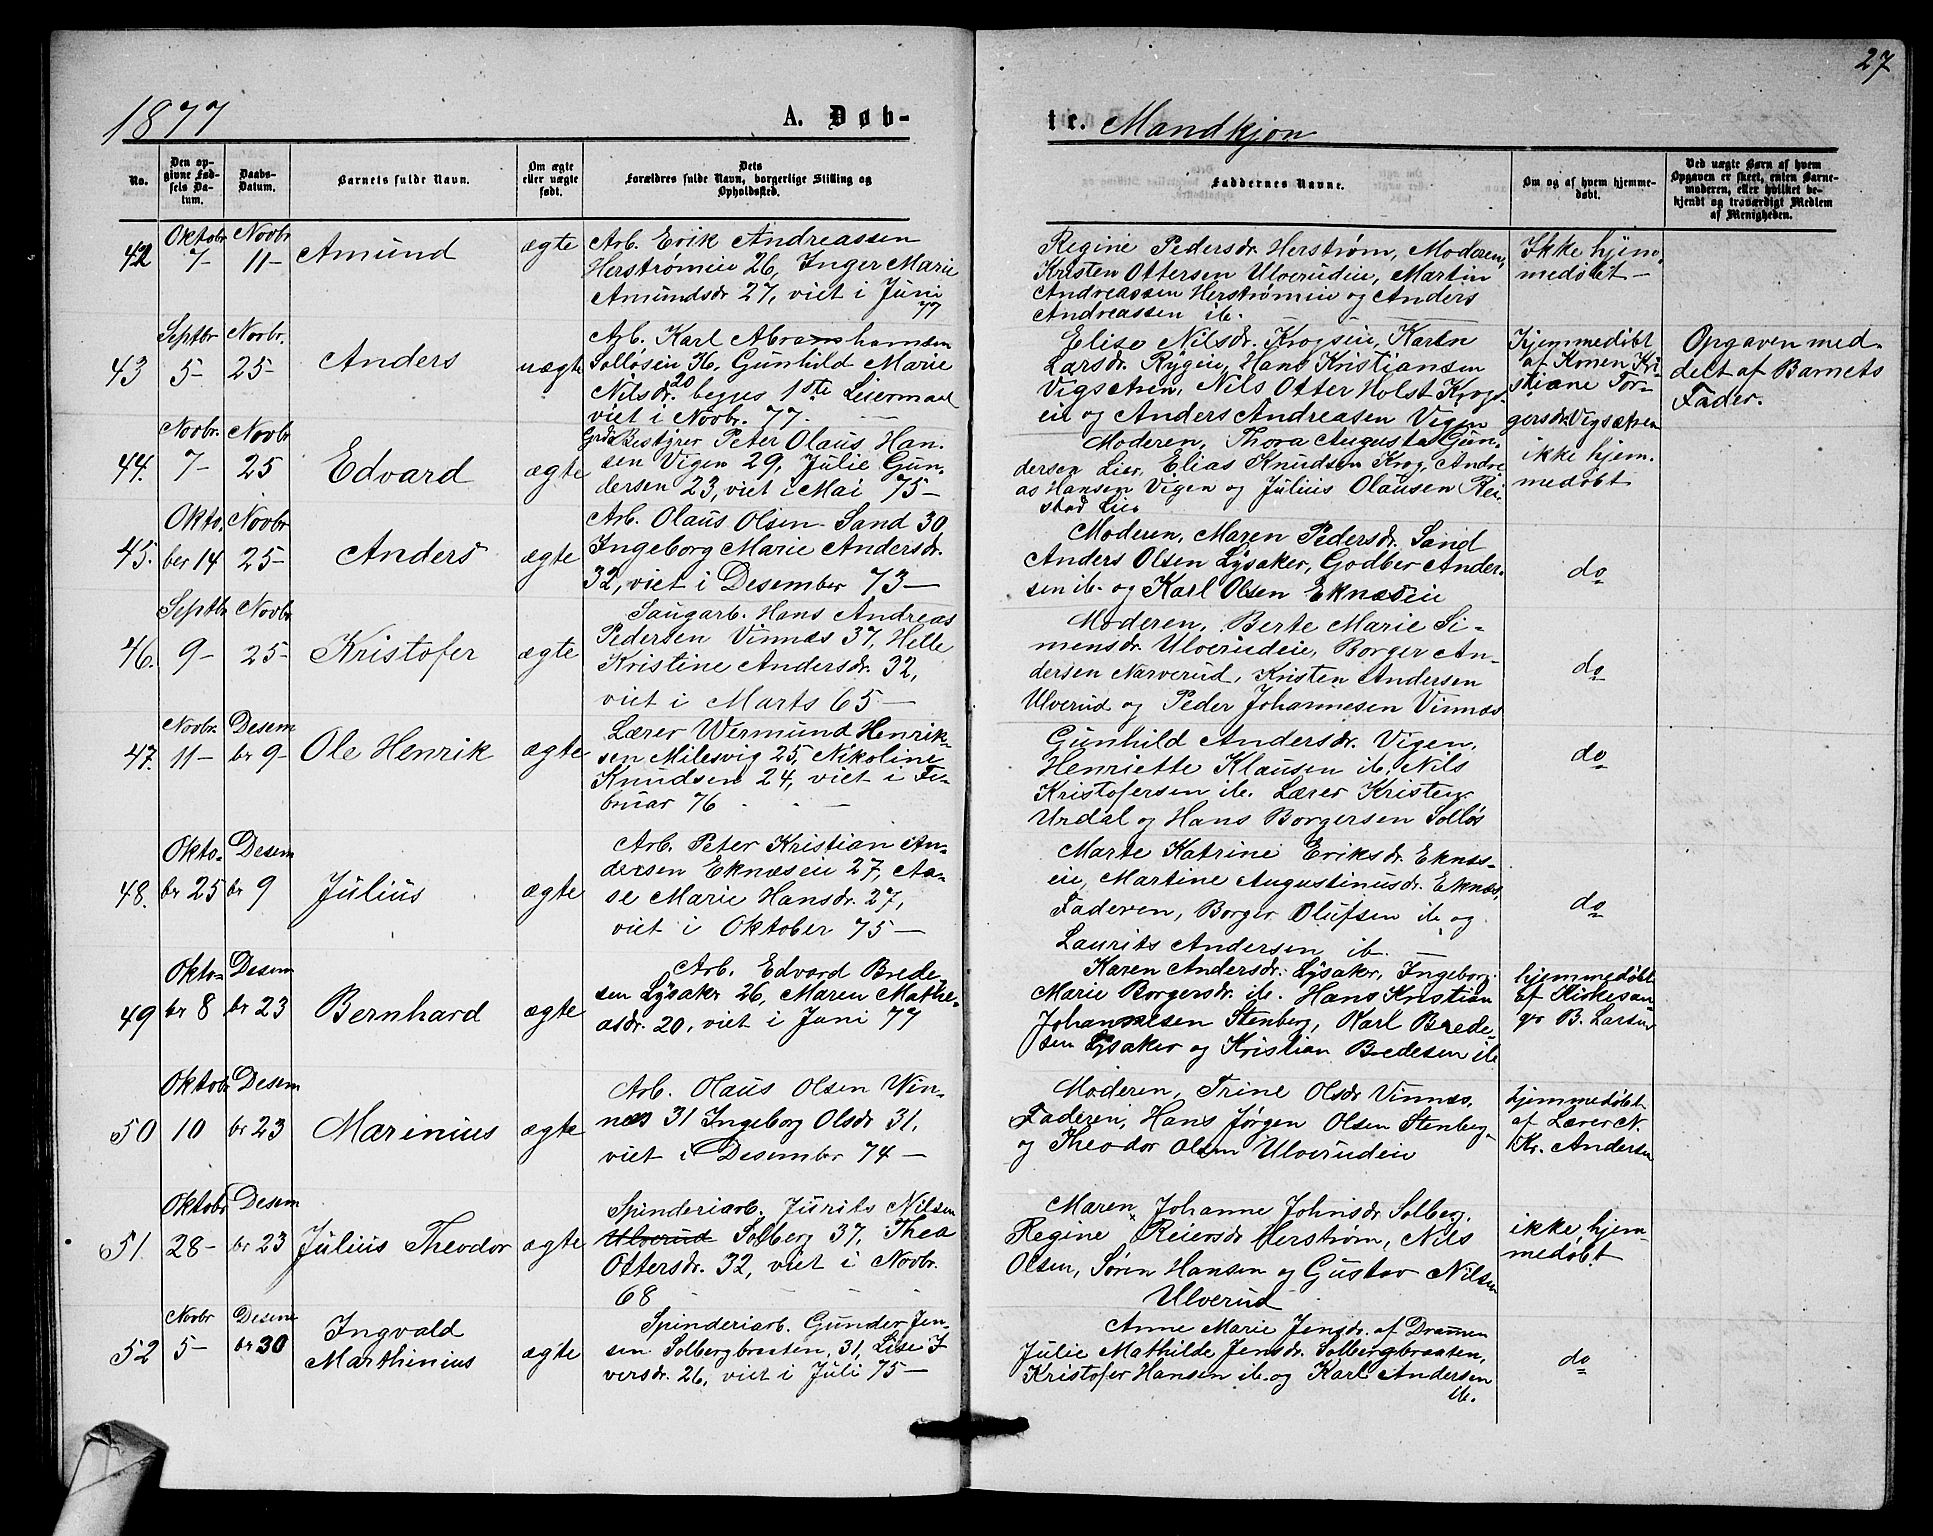 27
1877
A. Døb-
te. Mandkjøn
No.
Den op-
givne Fød-
sels Da-
tum.
Daabs-
Datum.
Barnets fulde Navn.
Om ægte
eller uægte
født.
Dets
Forældres fulde Navn, borgerlige Stilling og
Opholdssted.
Faddernes Navne.
Om og af hvem hjemme-
døbt.
Ved uægte Børn af hvem
Opgaven er skeet, enten Barne-
moderen, eller hvilket be-
kjendt og troværdigt Medlem
af Menigheden.
42
Oktobr
7-
Novbr
11-
Amund
ægte
Arb. Erik Andreassen
Herstrømeie 26, Inger Marie
Amundsdr. 27, viet i Juni
77
Regine Pedersdr. Herstrøm, Moderen,
Kristen Ottersen Ulverudeie, Martin
Andreassen Herstrømeie og Anders
Andreassen ib.
Ikke hjem-
medøbt-
43
Septbr
5-
Novbr.
25-
Anders
uægte
Arb. Karl Abrahamsen
Solløsen 16, Gunhild Marie
Nilsdr. 20 begges 1ste Leiermaal
viet i Novbr. 77.
Elise Nilsdr. Krogseie, Karen
Larsdr. Rygeie, Hans Kristiansen
Vigsetren, Nils Otter Holst Krogs-
eie og Anders Andreasen Vigen
Hjemmedøbt
af Konen Kri
stiane Tor-
gersdr. Vigsætren
Opgaven med-
delt af Barnets
Fader.
44.
Novbr.
7-
Novbr
25
Edvard
ægte
Grdbestyrer Peter Olaus Han-
sen Vigen 29, Julie Gun-
dersen 23, viet i Mai 75-
Moderen, Thora Augusta Gun-
dersen Lier, Elias Knudsen Krog, Andre
as Hansen Vigen og Julius Olausen Rei-
stad Lier
ikke hjem-
medøbt
45.
Okto-
ber 14
Novbr
25-
Anders
ægte
Arb. Olaus Olsen Sand 30
Ingeborg Marie Andersdr.
32, viet i Desember 73-
Moderen, Maren Pedersdr. Sand
Anders Olsen Lysaker, Godber Ander-
sen ib. og Karl Olsen Eknæseie
do
46.
Septbr
9-
Novbr
25-
Kristofer
ægte
Saugarb. Hans Andreas
Pedersen Vinnæs 37, Helle
Kristine Andersdr. 32,
viet i Marts 65-
Moderen, Berte Marie Si-
mensdr. Ulverudeie, Borger An-
dersen Narverud, Kristen Andersen
Ulverud og Peder Johannesen Vinnæs
do
47.
Novbr.
11-
Desem
br 9-
Ole Henrik
ægte
Lærer Wermund Henrik-
sen Milesvig 25, Nikoline
Knudsen 24, viet i Fe-
bruar 76
Gunhild Andersdr. Vigen,
Henriette Klausen ib. Nils
Kristofersen ib. Lærer Kristen
Urdal og Hans Borgersen Solløs
do
48.
Okto-
br 25
Desem
br 9
Julius
ægte
Arb. Peter Kristian An-
dersen Eknæseie 27, Aa-
se Marie Hansdr. 27,
viet i Oktober 75-
Marte Katrine Eriksdr. Eknæs-
eie, Martine Augustinusdr. Eknæs,
Faderen, Borger Olufsen ib og
Laurits Andersen ib.
do
49
Okto-
br 8
Desem
br 23
Bernhard
ægte
Arb. Edvard Brede-
sen Lysaker 26, Maren Mathe-
asdr. 20, viet i Juni 77
Karen Andersdr. Lysaker, Ingeborg
Marie Borgersdr. ib. Hans Kristian
Johannesen Stenberg, Karl Brede-
sen Lysaker og Kristian Bredesen ib
hjemmedøbt
af Kirkesan
ger B. Larsen
50
Oktobr
10
Desem
br 23
Marinius
ægte
Arb. Olaus Olsen Vin-
næs 31 Ingeborg Olsdr 31,
viet i Desember 74-
Moderen, Trine Olsdr Vinnæs,
Faderen, Hans Jørgen Olsen Stenberg
og Theodor Olsen Ulverudeie
hjemmedøbt
af Lærer N.
Kr. Andersen
51.
Oktobr
28-
Desem
br 23
Julius Theodor
ægte
Spinderiarb. Jurits Nilsen
Ulverud Solberg 37, Thea
Ottersdr. 32, viet i Novbr.
68
Maren Johanne Johnsdr Solberg,
Regine Reiersdr Herstrøm, Nils
Olsen, Søren Hansen og Gustav Nilsen
Ulverud
ikke hjem-
medøbt
52
Novbr
5-
Desem
br 30
Ingvald
Marthinius
ægte
Spinderiarb. Gunder Jen-
sen Solbergbraaten, 31, Lise I
versdr. 26, viet i Juli 75-
Anne Marie Jensdr. af Dramen
Julie Mathilde Jensdr. Solbergbraaten,
Kristofer Hansen ib. og Karl Andersen
ib.
do